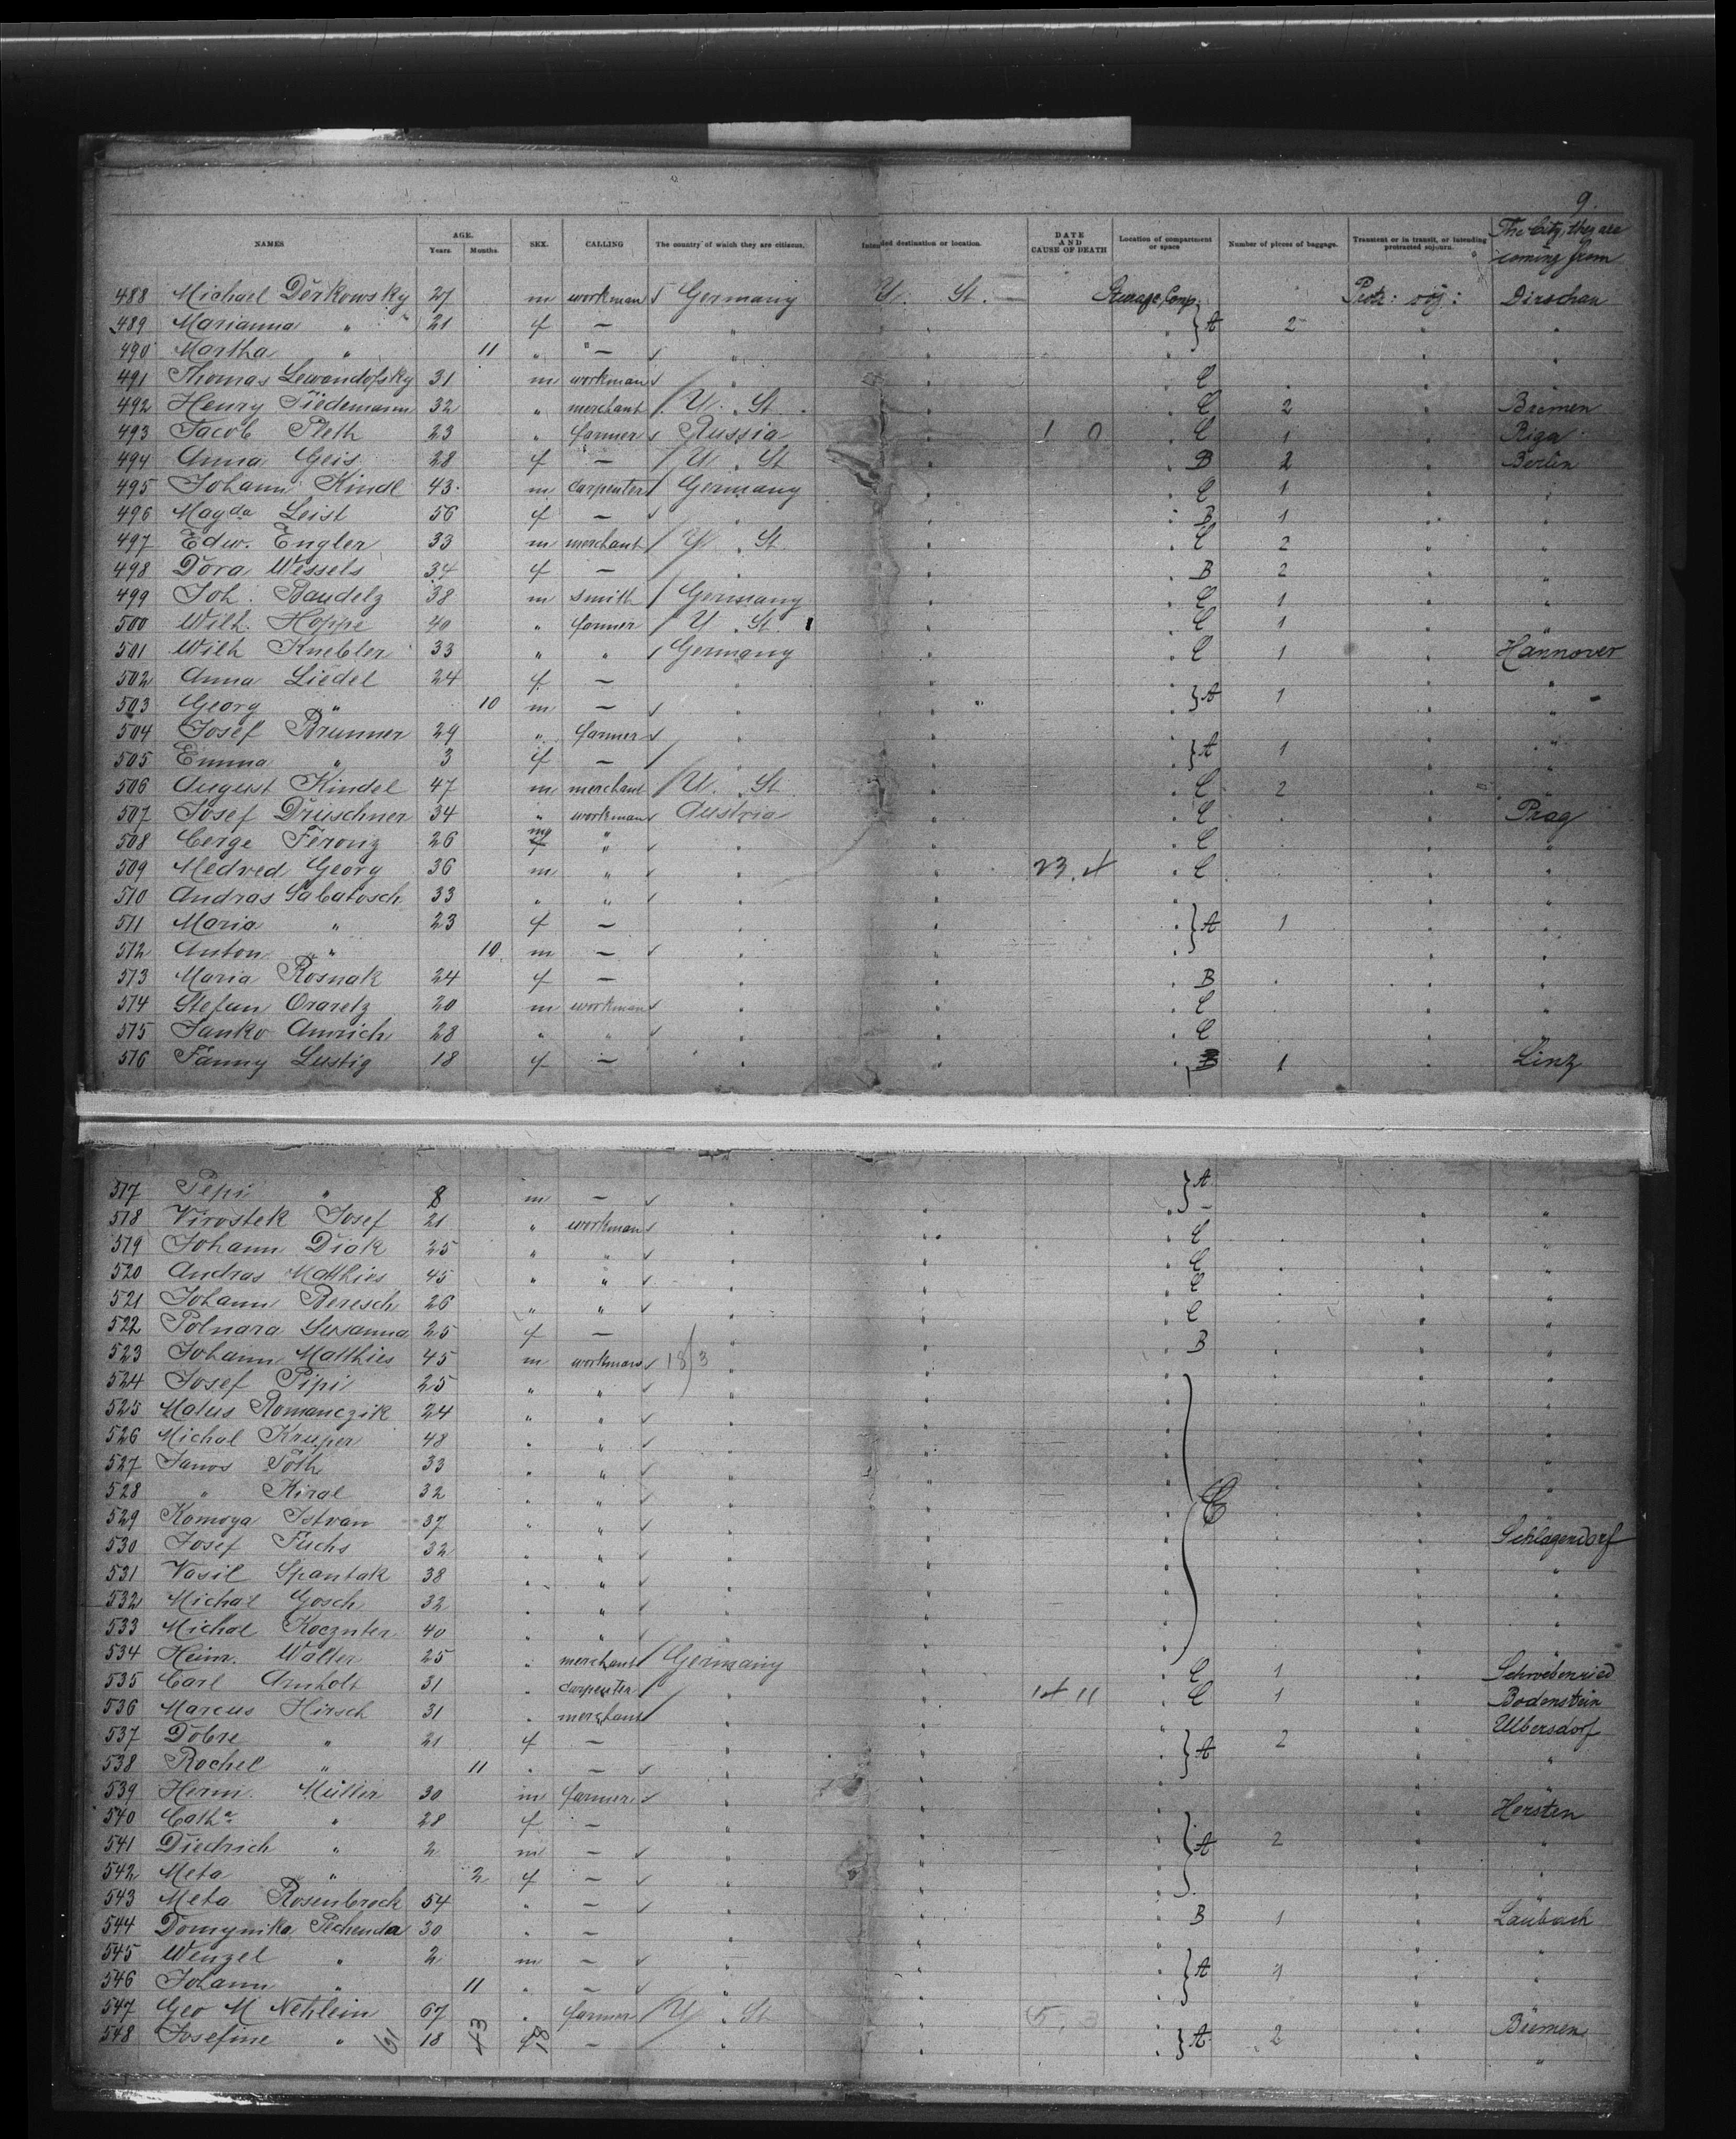 9.
NAMES AGE. Years. Months. SEX. CALLING The country of which they are citizens. Intended destination or location. DATE AND CAUSE OF DEATH Location of compartment or space Number of pieces of baggage. Transient or in transit, or intending protracted sojourn. The City, they are coming from
488 Michael Derkowsky 27 m workman Germany U. St. Steerage Comp. Protr: soj: Dirschau
489 Marianna " 21 f — " " } A 2 " "
490 Martha " 11 " — " " " "
491 Thomas Lewandofsky 31 m workman " " C " " "
492 Henry Tiedemann 32 " merchant U. St. " C 2 " Bremen
493 Jacob Pleth 23 " farmer Russia " 1 0 C 1 " Riga
494 Anna Geis 28 f — U. St " B 2 " Berlin
495 Johann Kindl 43 m carpenter Germany " C 1 " "
496 Magda Leist 56 f — " " B 1 " "
497 Edw. Engler 33 m merchant U. St. " C 2 " "
498 Dora Wessels 34 f — " " B 2 " "
499 Joh. Baudelz 38 m smith Germany " C 1 " "
500 Wilh. Hoppe 40 " farmer U. St. " C 1 " "
501 Wilh Knebler 33 " " Germany " C 1 " Hannover
502 Anna Liedel 24 f — " " " "
503 Georg " 10 m — " " } A 1 " "
504 Josef Brunner 29 " farmer " " " "
505 Emma " 3 f — " " } A 1 " "
506 August Kindel 47 m merchant U. St. " C 2 " "
507 Josef Druschner 34 " workman Austria " C " " Prag
508 Cerge Feronz 26 m " " " C " " "
509 Medved Georg 36 m " " " C " " "
510 Andras Sabatosch 33 " " " " " "
511 Maria " 23 f — " " } A 1 " "
512 Anton " 10 m — " " " "
513 Maria Rosnak 24 f — " " B " " "
514 Stefan Oraretz 20 m workman " " C " " "
515 Janko Amrich 28 " " " " C " " "
516 Fanny Lustig 18 f — " " B 1 " Linz
517 Pepi " 8 m — " " } A " "
518 Virostek Josef 21 " workman " " C " " "
519 Johann Diak 25 " " " " C " " "
520 Andras Matthies 45 " " " " C " " "
521 Johann Beresch 26 " " " " C " " "
522 Polnara Susanna 25 f — " " B " " "
523 Johann Matthies 45 m workman 18/3 " " " " "
524 Josef Pipi 25 " " " " " " "
525 Matus Romanczik 24 " " " " " " "
526 Michal Kruper 48 " " " " " " "
527 Janos Toth 33 " " " " " " "
528 " Kiral 32 " " " " C " " "
529 Komoya Istvan 37 " " " " " " "
530 Josef Fuchs 32 " " " " " " Schlagendorf
531 Vasil Spantak 38 " " " " " " "
532 Michal Gosch 32 " " " " " " "
533 Michal Kocznter 40 " " " " " " "
534 Heinr. Walter 25 " merchant Germany " C 1 " Schwebenried
535 Carl Arnholt 31 " carpenter " " C 1 " Bodenstein
536 Marcus Hirsch 31 " merchant " " " Ulbersdorf
537 Dobre " 21 f — " " } A 2 " "
538 Rachel " 11 " — " " " "
539 Herm. Müller 30 m farmer " " " Hersten
540 Catha " 28 f — " " " "
541 Diedrich " 2 m — " " } A 2 " "
542 Meta " 2 f — " " " "
543 Meta Rosenbrock 54 " — " " B 1 " Laubach
544 Domynika Pechenda 30 " — " " " "
545 Wenzel " 2 m — " " } A 1 " "
546 Johann " 11 " — " " " "
547 Geo M Nehlein 67 " farmer U. St " " Bremen
548 Josefine " 61 18 43 f 18 — " " } A 2 " "